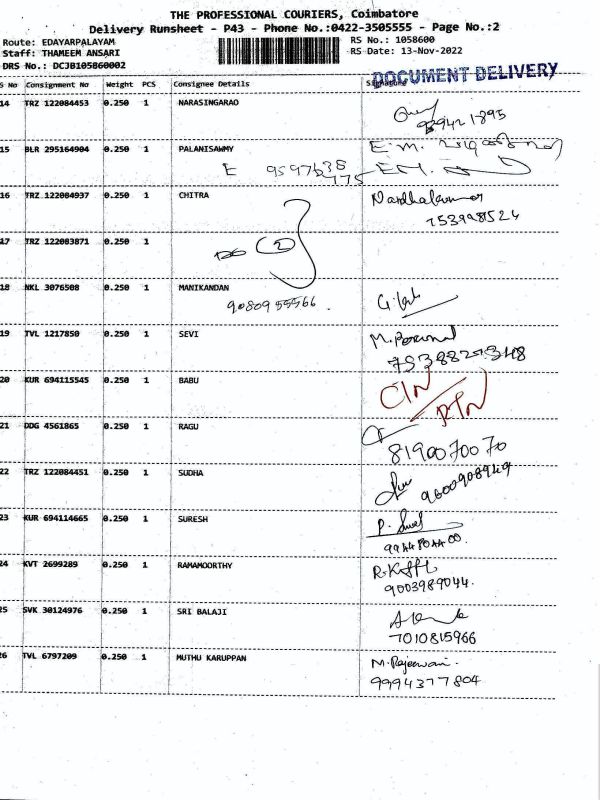 THE PROFESSIONAL COURIERS, Coimbatore
Delivery Runsheet - P43 - Phone No:0422-3505555 - Page No.:2
Route: EDAYARPALAYAM
RS No.: 1058600
Staff: THAMEEM ANSARI
RS Date: 13-Nov-2022
DRS No.: DCJB105860002
DOCUMENT DELIVERY
S No Consignment No Weight PCS Consignee Details Signature
14 TRZ 122084453 0.250 1 NARASINGARAO
15 BLR 295164904 0.250 1 PALANISAWMY
E.M.
E 9597638
775
16 TRZ 122084937 0.250 1 CHITRA
7539981524
17 TRZ 122083871 0.250 1
18 NKL 3076508 0.250 1 MANIKANDAN
9080955566.
19 TVL 1217850 0.250 1 SEVI
20 KUR 694115545 0.250 1 BABU
21 DDG 4561865 0.250 1 RAGU
8190070070
22 TRZ 122084451 0.250 1 SUDHA
9600908949
23 KUR 694114665 0.250 1 SURESH
24 KVT 2699289 0.250 1 RAMAMOORTHY
9003989044.
25 SVK 30124976 0.250 1 SRI BALAJI
7010815966
26 TVL 6797209 0.250 1 MUTHU KARUPPAN
9994377804